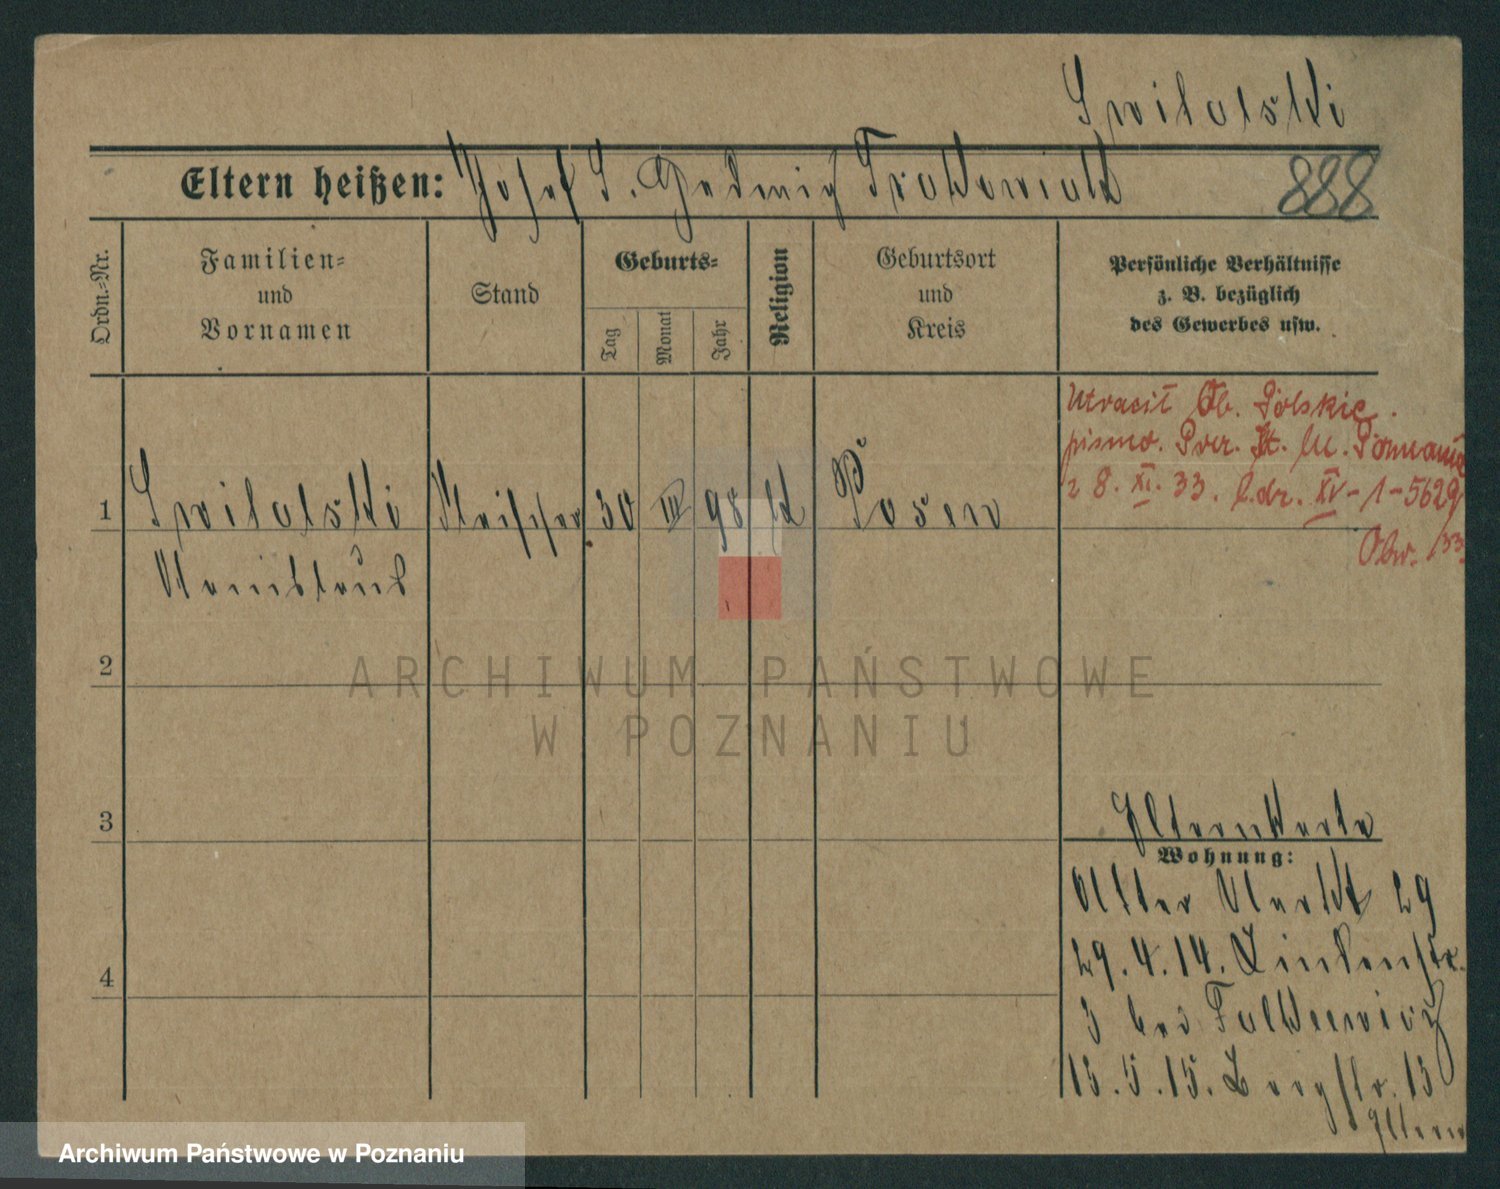 Swilalski
Eltern heißen: Josef S. Hedwig Frackowiak
888
Ordn.-Nr.
Familien-
und
Vornamen
Stand
Geburts-
Tag
Monat
Jahr
Religion
Geburtsort
und
Kreis
Persönliche Verhältnisse
z. B. bezüglich
des Gewerbes usw.
Utracił Ob. Polskie.
pismo. St. M. Poznania
z 8. XI. 33. l.dz. XV-1-5629/
33.
1 Swilalski Fleischer 30 III 98 k Posen
Stanislaus
2
3
4
ARCHIWUM PAŃSTWOWE
W POZNANIU
Elternkarte
Wohnung:
Alter Markt 29
29.4.14. Lindenstr.
3 bei
15.5.15. Bergstr. 15
Eltern
Archiwum Państwowe w Poznaniu